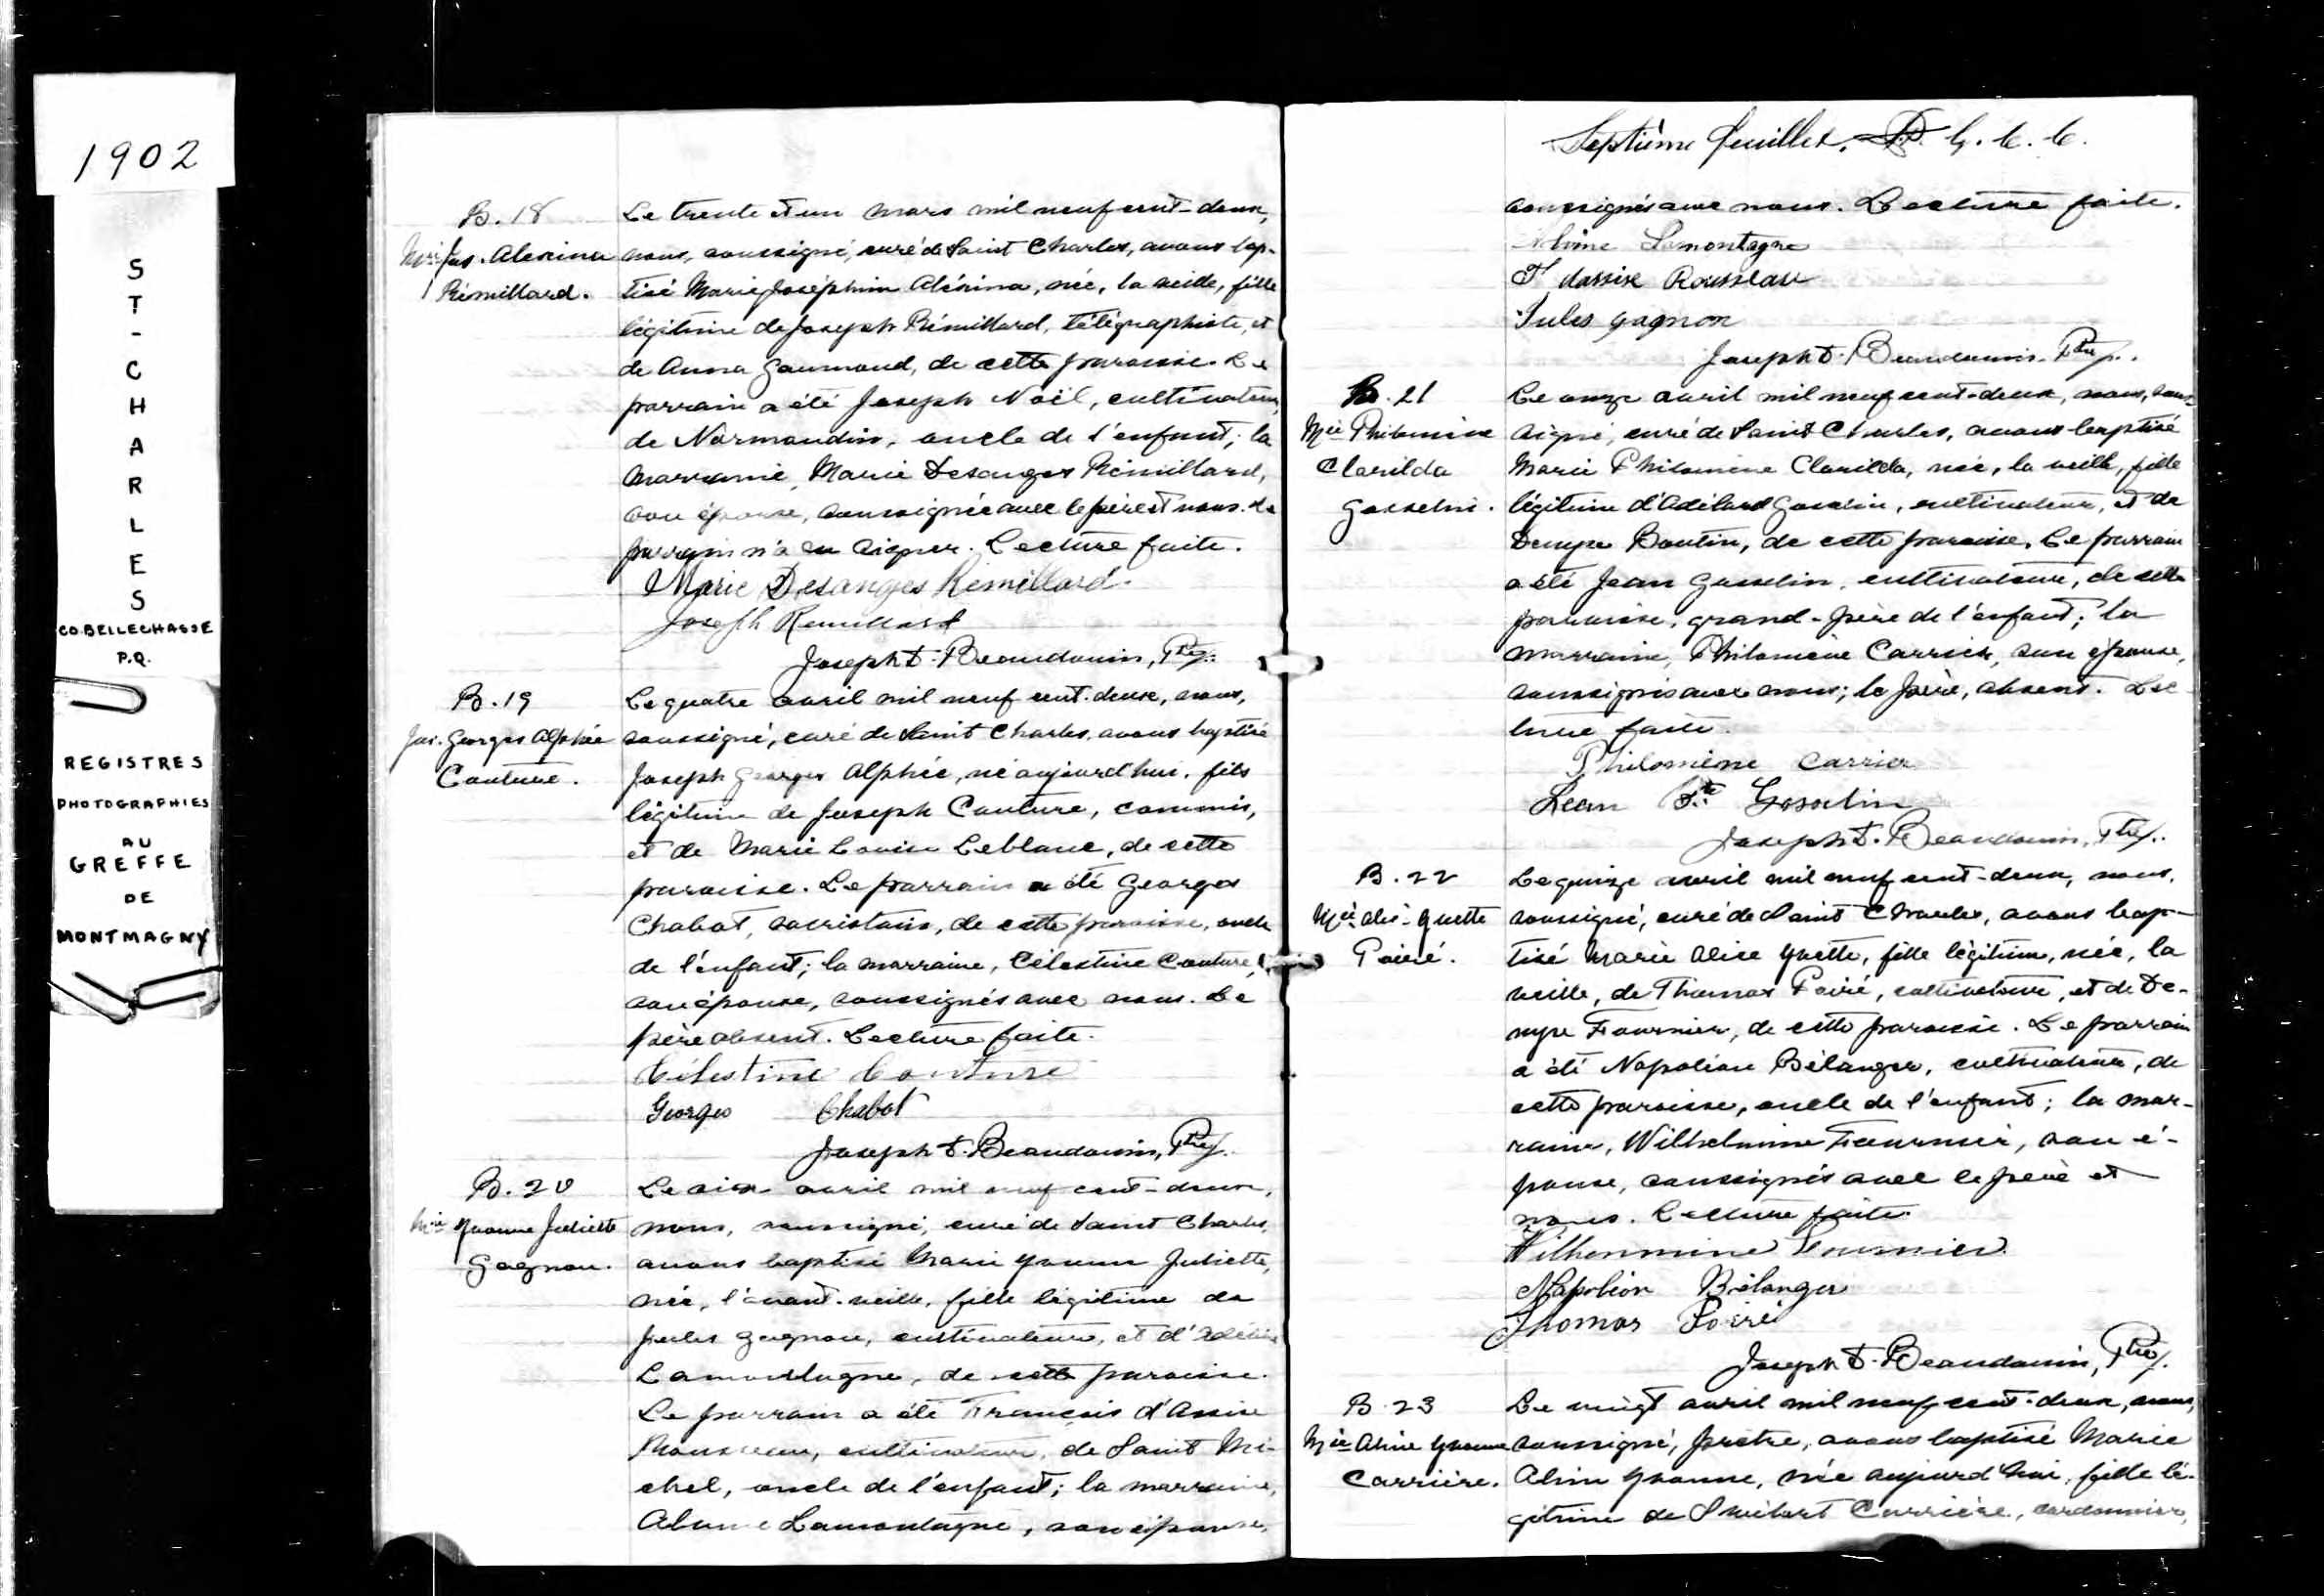 1902
S
T
-
C
H
A
R
L
E
S
CO. BELLECHASSE
P.Q.
REGISTRES
PHOTOGRAPHIES
AU
GREFFE
DE
MONTMAGNY
B. 18
Mie Jos. Alexina
Rémillard.
Le trente et un mars mil neuf cent-deux,
nous, soussigné, curé de Saint Charles, avons bap-
tisé Marie Joséphine Aléxina, née, la veille, fille
légitime de Joseph Rémillard, télégraphiste, et
de Anna Gaumond, de cette paroisse. Le
parrain a été Joseph Noël, cultivateur,
de Normandin, oncle de l'enfant; la
marraine, Marie Desanges Rémillard,
son épouse, soussignée avec le père et nous. Le
parrain n'a su signer. Lecture faite.
Marie Desanges Remillard.
Joseph Remillard
Joseph D. Beaudouin, Ptre.
B. 19
Jos. Georges Alphée
Couture.
Le quatre avril mil neuf cent-deux, nous,
soussigné, curé de Saint Charles, avons baptisé
Joseph Georges Alphée, né aujourd'hui, fils
légitime de Joseph Couture, commis,
et de Marie Louise Leblanc, de cette
paroisse. Le parrain a été Georges
Chabot, sacristain, de cette paroisse, oncle
de l'enfant; la marraine, Célestine Couture,
son épouse, soussignés avec nous. Le
père absent. Lecture faite.
Célestine Couture
Georges Chabot
Joseph D. Beaudouin, Ptre.
B. 20
Mie Yvonne Juliette
Gagnon.
Le six avril mil neuf cent-deux,
nous, soussigné, curé de Saint Charles,
avons baptisé Marie Yvonne Juliette,
née, l'avant-veille, fille légitime de
Jules Gagnon, cultivateur, et d'
Lamontagne, de cette paroisse.
Le parrain a été François d'Assise
Rousseau, cultivateur, de Saint Mi-
chel, oncle de l'enfant; la marraine,
Lamontagne, son épouse,
Septième feuillet. G. C. C.
soussignés avec nous. Lecture faite.
Lamontagne
F. dassise Rousseau
Jules Gagnon
Joseph D. Beaudouin, Ptre.
B. 21
Mie Philomène
Clarilda
Gosselin.
Le onze avril mil neuf cent-deux, nous, sous-
signé, curé de Saint Charles, avons baptisé
Marie Philomène Clarilda, née, la veille, fille
légitime d'Adélard Gosselin, cultivateur, et de
Demyse Boutin, de cette paroisse. Le parrain
a été Jean Gosselin, cultivateur, de cette
paroisse, grand-père de l'enfant; la
marraine, Philomène Carrier, son épouse,
soussignés avec nous; le père, absent. Lec-
ture faite.
Philomène Carrier
Jean Bte Gosselin
Joseph D. Beaudouin, Ptre.
B. 22
Mie Alice Yvette
Poiré.
Le quinze avril mil neuf cent-deux, nous,
soussigné, curé de Saint Charles, avons bap-
tisé Marie Alice Yvette, fille légitime, née, la
veille, de Thomas Poiré, cultivateur, et de De-
Fournier, de cette paroisse. Le parrain
a été Napoléon Bélanger, cultivateur, de
cette paroisse, oncle de l'enfant; la mar-
raine, Wilhelmine Fournier, son é-
pouse, soussignés avec le père et
nous. Lecture faite.
Wilhenmine Fournier
Napoléon Bélanger
Thomas Poiré
Joseph D. Beaudouin, Ptre.
B. 23
Mie Aline Yvonne
Carrière.
Le vingt avril mil neuf cent-deux, nous,
soussigné, prêtre, avons baptisé Marie
Aline Yvonne, née aujourd'hui, fille lé-
gitime de Carrière, cordonnier,